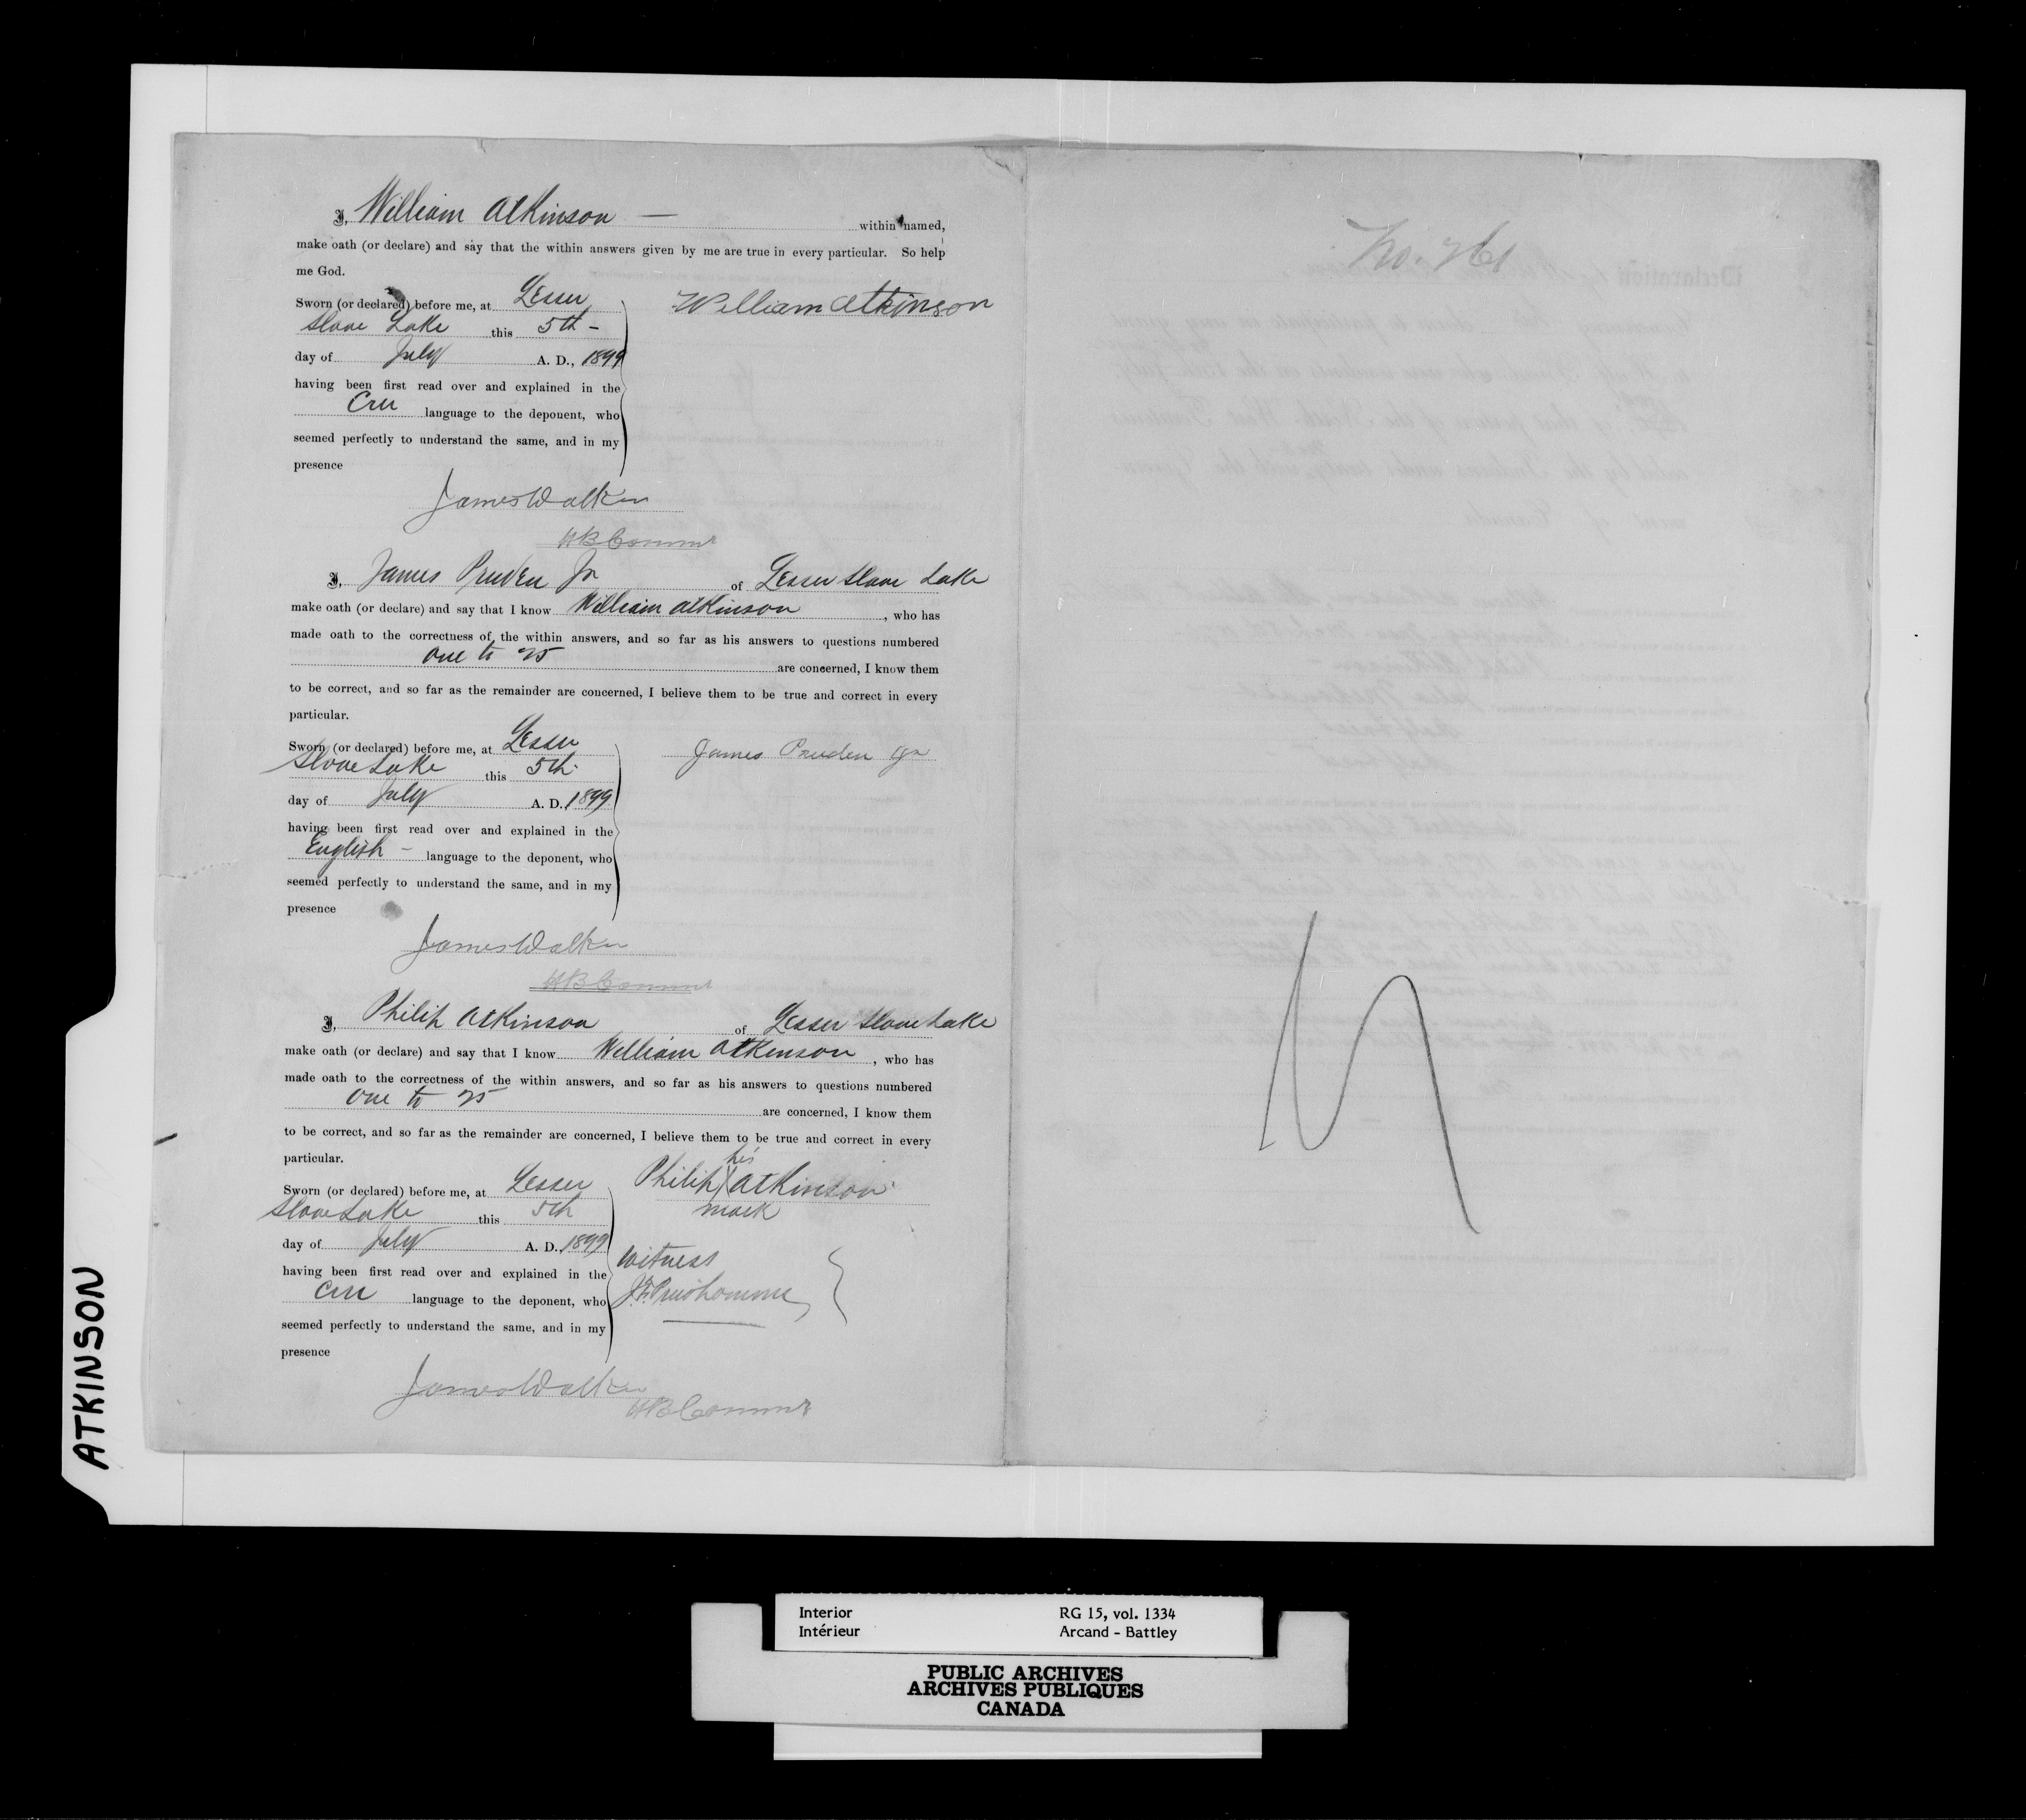 I, William Atkinson — within named,
make oath (or declare) and say that the within answers given by me are true in every particular. So help
me God.
Sworn (or declared) before me, at Lesser
Slave Lake this 5th -
day of July A. D., 1899
having been first read over and explained in the
Cree language to the deponent, who
seemed perfectly to understand the same, and in my
presence
William Atkinson
James Walker
HB Commr
I, James Pruden Jr of Lesser Slave Lake
make oath (or declare) and say that I know William Atkinson, who has
made oath to the correctness of the within answers, and so far as his answers to questions numbered
One to 25 are concerned, I know them
to be correct, and so far as the remainder are concerned, I believe them to be true and correct in every
particular.
Sworn (or declared) before me, at Lesser
Slave Lake this 5th
day of July A. D. 1899
having been first read over and explained in the
English - language to the deponent, who
seemed perfectly to understand the same, and in my
presence
James Pruden Jr
James Walker
HB Commr
I, Philip Atkinson of Lesser Slave Lake
make oath (or declare) and say that I know William Atkinson, who has
made oath to the correctness of the within answers, and so far as his answers to questions numbered
One to 25 are concerned, I know them
to be correct, and so far as the remainder are concerned, I believe them to be true and correct in every
particular.
Sworn (or declared) before me, at Lesser
Slave Lake this 5th
day of July A. D. 1899
having been first read over and explained in the
Cree language to the deponent, who
seemed perfectly to understand the same, and in my
presence
his
Philip X Atkinson
mark
Witness
J.F. Prudhomme
James Walker
HB Commr
ATKINSON
Interior RG 15, vol. 1334
Intérieur Arcand - Battley
PUBLIC ARCHIVES
ARCHIVES PUBLIQUES
CANADA